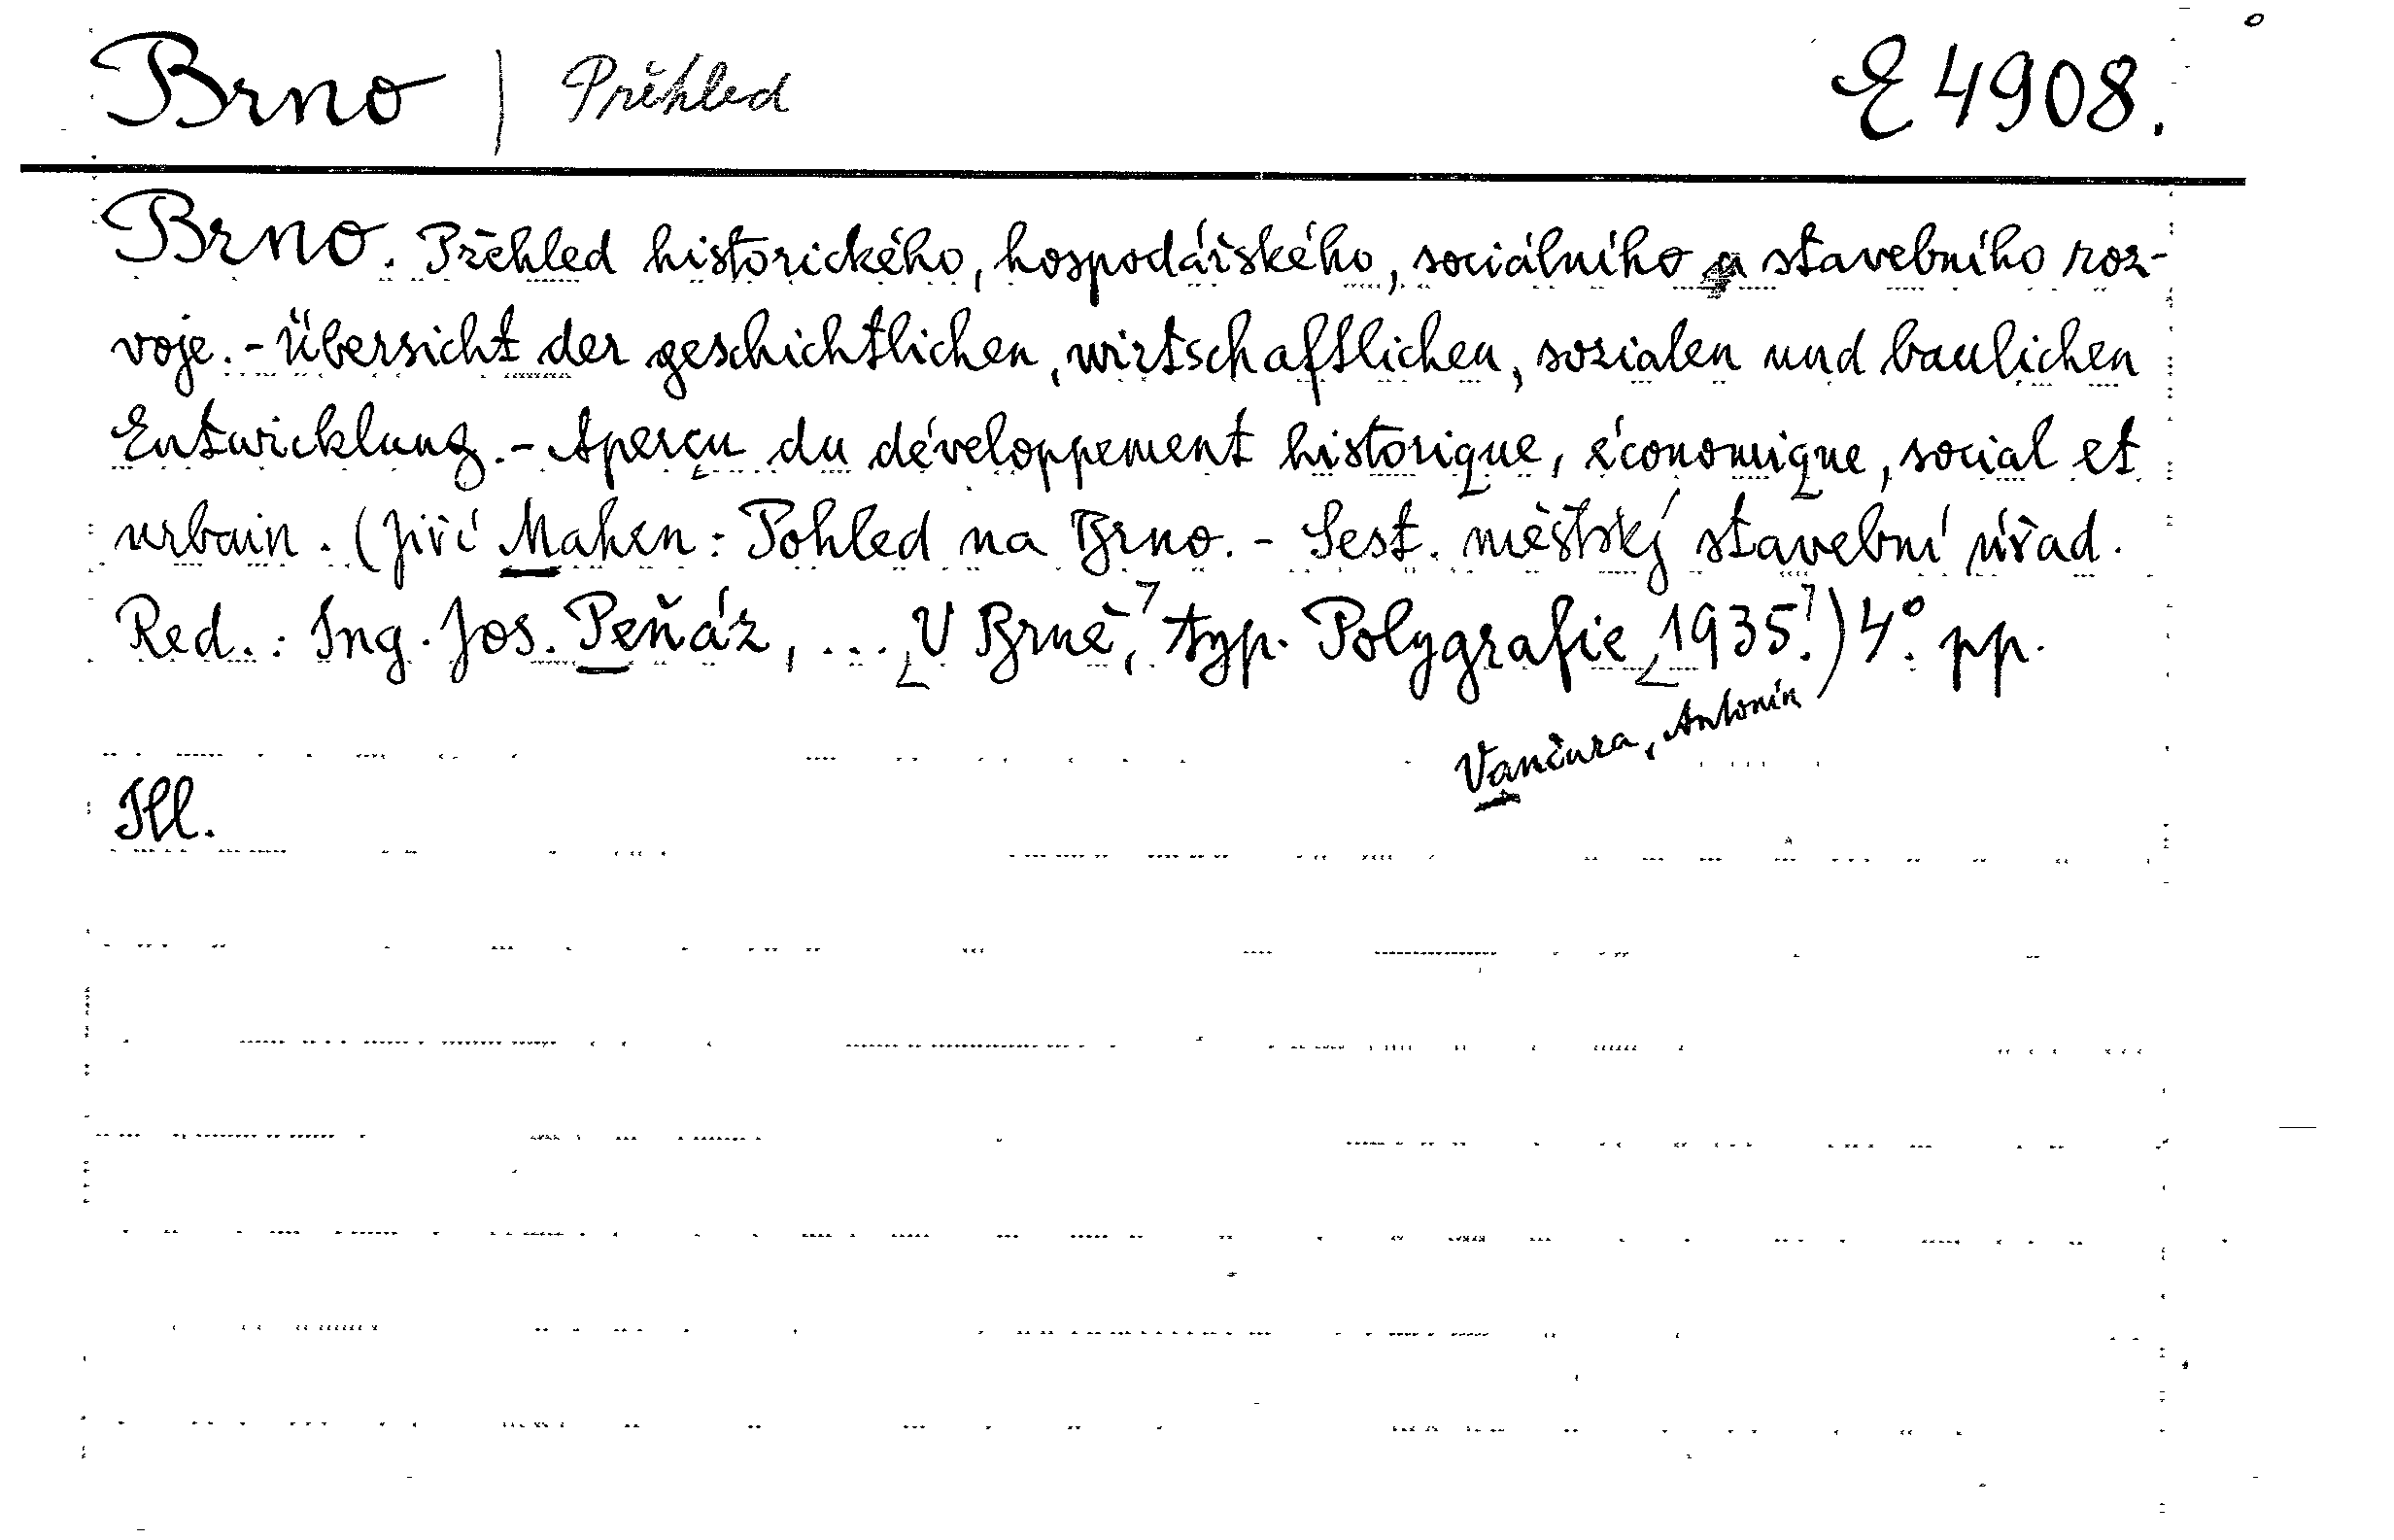 Brno | Přehled E 4908.
Brno. Přehled historického, hospodářského, sociálního a stavebního roz-
voje. - Übersicht der geschichtlichen, wirtschaftlichen, sozialen und baulichen
Entwicklung. - Aperçu du développement historique, économique, social et
urbain. (Jiří Mahen: Pohled na Brno. - Sest. městský stavební úřad.
Red.: Ing. Jos. Peňáz, ... [V Brně,] typ. Polygrafie [1935.]) 4°. pp.
Vančura, Antonín
Ill.